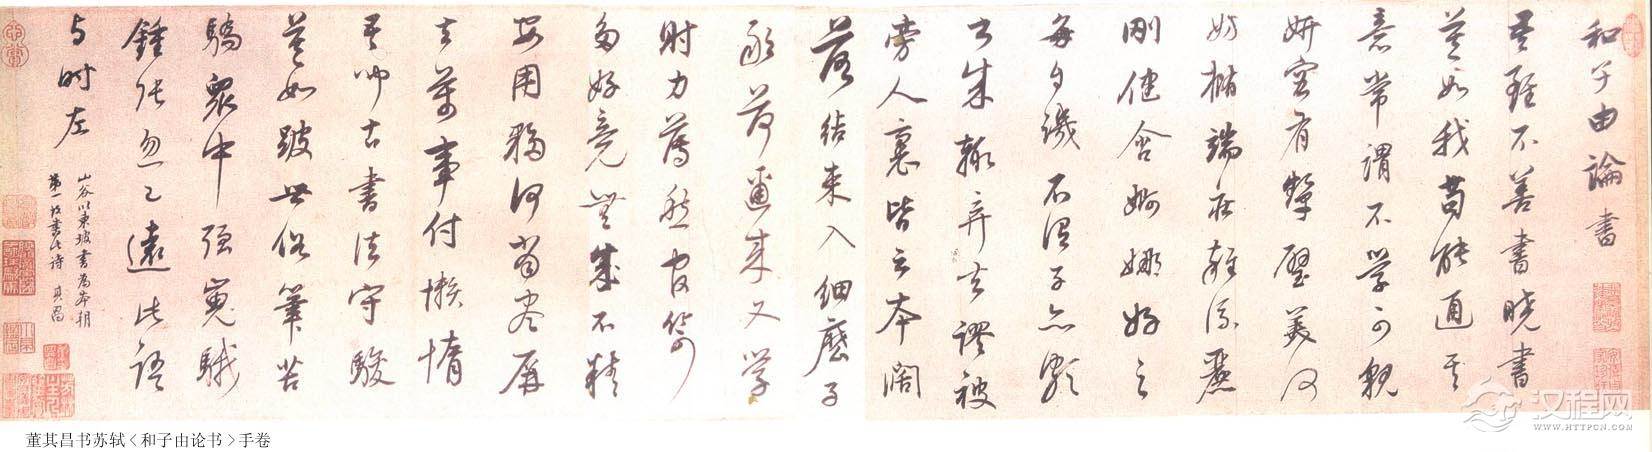 和子由論書
吾雖不善書曉書
莫如我苟能通其
意常謂不學可貌
妍容有顰璧美何
妨橢端莊雜流麗
剛健含婀娜好之
每自譏不謂子亦頗
書成輒棄去謬被
旁人裹皆云本闊
落結束入細麼子
敢荷爾來又學
射力薄愁官笴
多好竟無成不精
安用夥何當盡屏
去萬事付懶惰
吾聞古書法守駿
莫如跛世俗筆苦
驕眾中強嵬騀
鍾張忽已遠此語
與時左
山谷以東坡書為本朝
第一故書此詩 其昌
董其昌书苏轼<和子由论书>手卷
汉程网
WWW.HTTPCN.COM